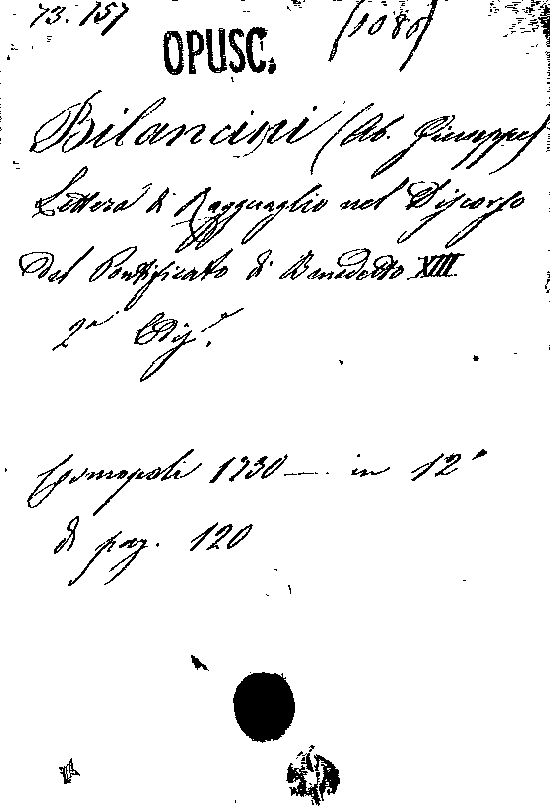 73.157 (1080)
OPUSC.
Bilancini (Ab. Giuseppe)
Lettera di Ragguaglio nel Discorso
del Pontificato di Benedetto XIII
2ª Ediz.e
Cosmopoli 1730 — in 12°
di pag. 120